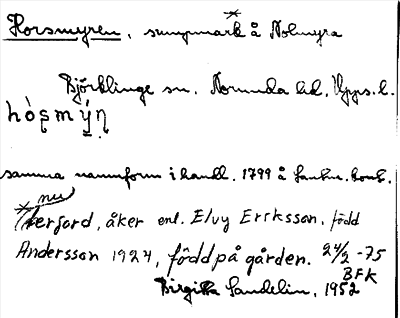 Horsmyren, sumpmark å Nolmyra
Björklinge sn. Norunda hd. Upps. l.
hòʂmýn̥
samma namnform i handl. 1799 å Lantm. kont.
* nu
åkerjord, åker enl. Elvy Eriksson, född
Andersson 1924, född på gården. 24/2 -75
BFK
Birgitta Sandelin, 1952